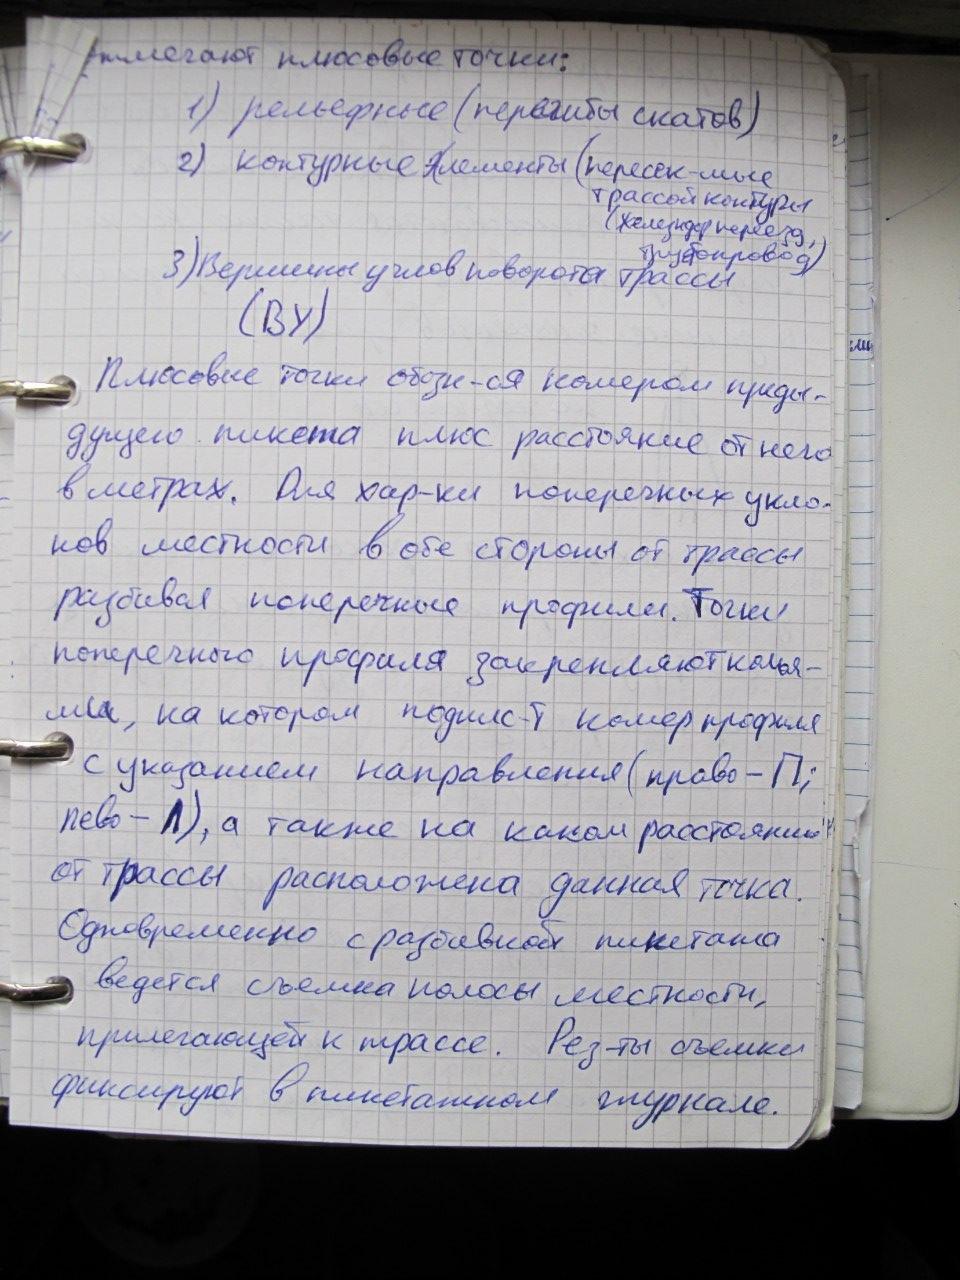 плюсовые точки:
1) рельефные (перегибы скатов)
2) контурные элементы (пересек-мые
трассой контуры
(железндор переезд,
трубопровод)
3) Вершины углов поворота трассы
(ВУ)
Плюсовые точки обозн-ся номером преды-
дущего пикета плюс расстояние от него
в метрах. Для хар-ки поперечных укло-
нов местности в обе стороны от трассы
разбивал поперечные профили. Точки
поперечного профиля закрепляют колья-
ми, на котором подпис-т номер профиля
с указанием направления (право - П;
лево - Л), а также на каком расстоянии
от трассы расположена данная точка.
Одновременно с разбивкой пикетажа
ведется съемка полосы местности,
прилегающей к трассе. Рез-ты съемки
фиксируют в пикетажном журнале.